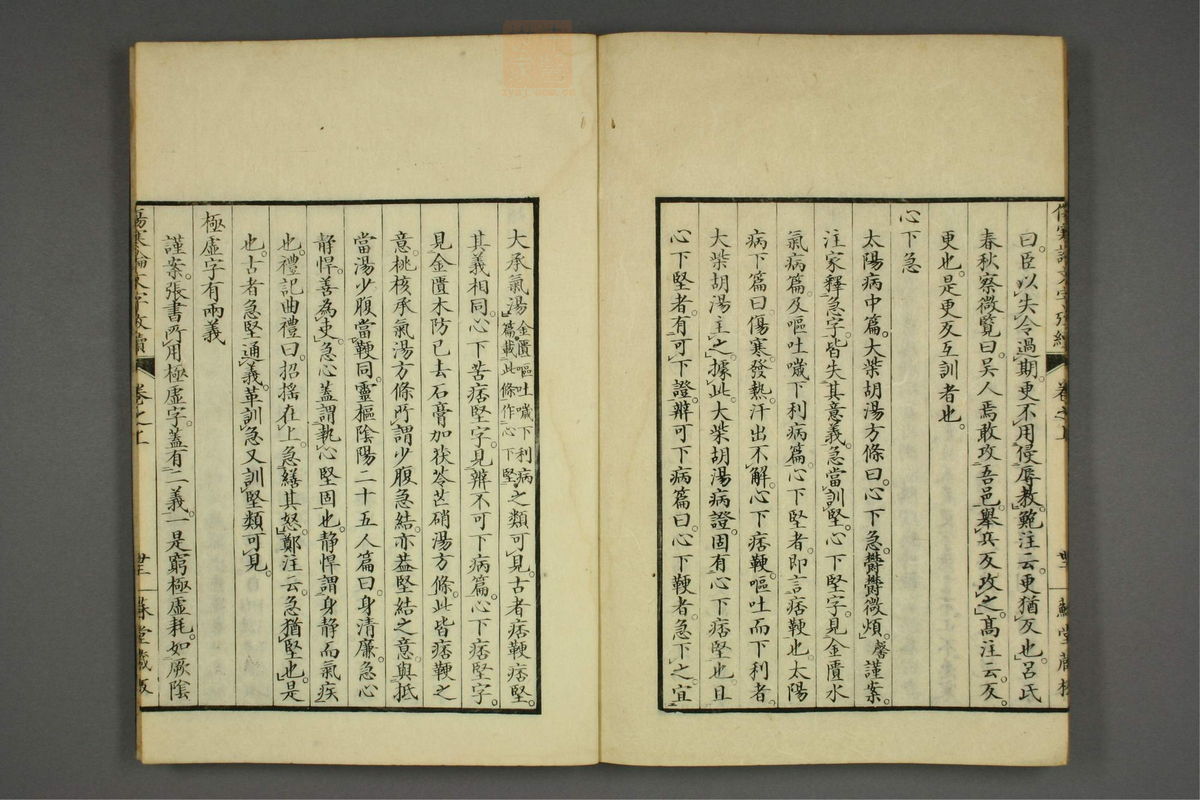 曰。臣以失令過期。更不用侵辱教。鮑注云。更猶反也。呂氏
春秋察微覽曰。吳人焉敢攻吾邑。舉兵反攻之。高注云。反。
更也。是更反互訓者也。
心下急
太陽病中篇。大柴胡湯方條曰。心下急。鬱鬱微煩。馨謹案。
注家釋急字。皆失其意義。急當訓堅。心下堅字。見金匱水
氣病篇。及嘔吐噦下利病篇。心下堅者。即言痞鞕也。太陽
病下篇曰。傷寒。發熱。汗出不解。心下痞鞕。嘔吐而下利者。
大柴胡湯主之。據此。大柴胡湯病證。固有心下痞堅也。且
心下堅者。有可下證。辨可下病篇曰。心下鞕者。急下之。宜
大承氣湯。金匱嘔吐噦下利病篇載此條作心下堅之類可見。古者痞鞕痞堅。
其義相同。心下苦痞堅字。見辨不可下病篇。心下痞堅字。
見金匱木防已去石膏加茯苓芒硝湯方條。此皆痞鞕之
意。桃核承氣湯方條。所謂少腹急結。亦益堅結之意。與抵
當湯少腹當鞕同。靈樞陰陽二十五人篇曰。身清廉。急心
靜悍。善為吏。急心蓋謂執心堅固也。靜悍謂身靜而氣疾
也。禮記曲禮曰。招搖在上。急繕其怒。鄭注云。急猶堅也。是
也。古者急堅通義。革訓急又訓堅。類可見。
極虛字有兩義
謹案。張書所用極虛字。蓋有二義。一是窮極虛耗。如厥陰